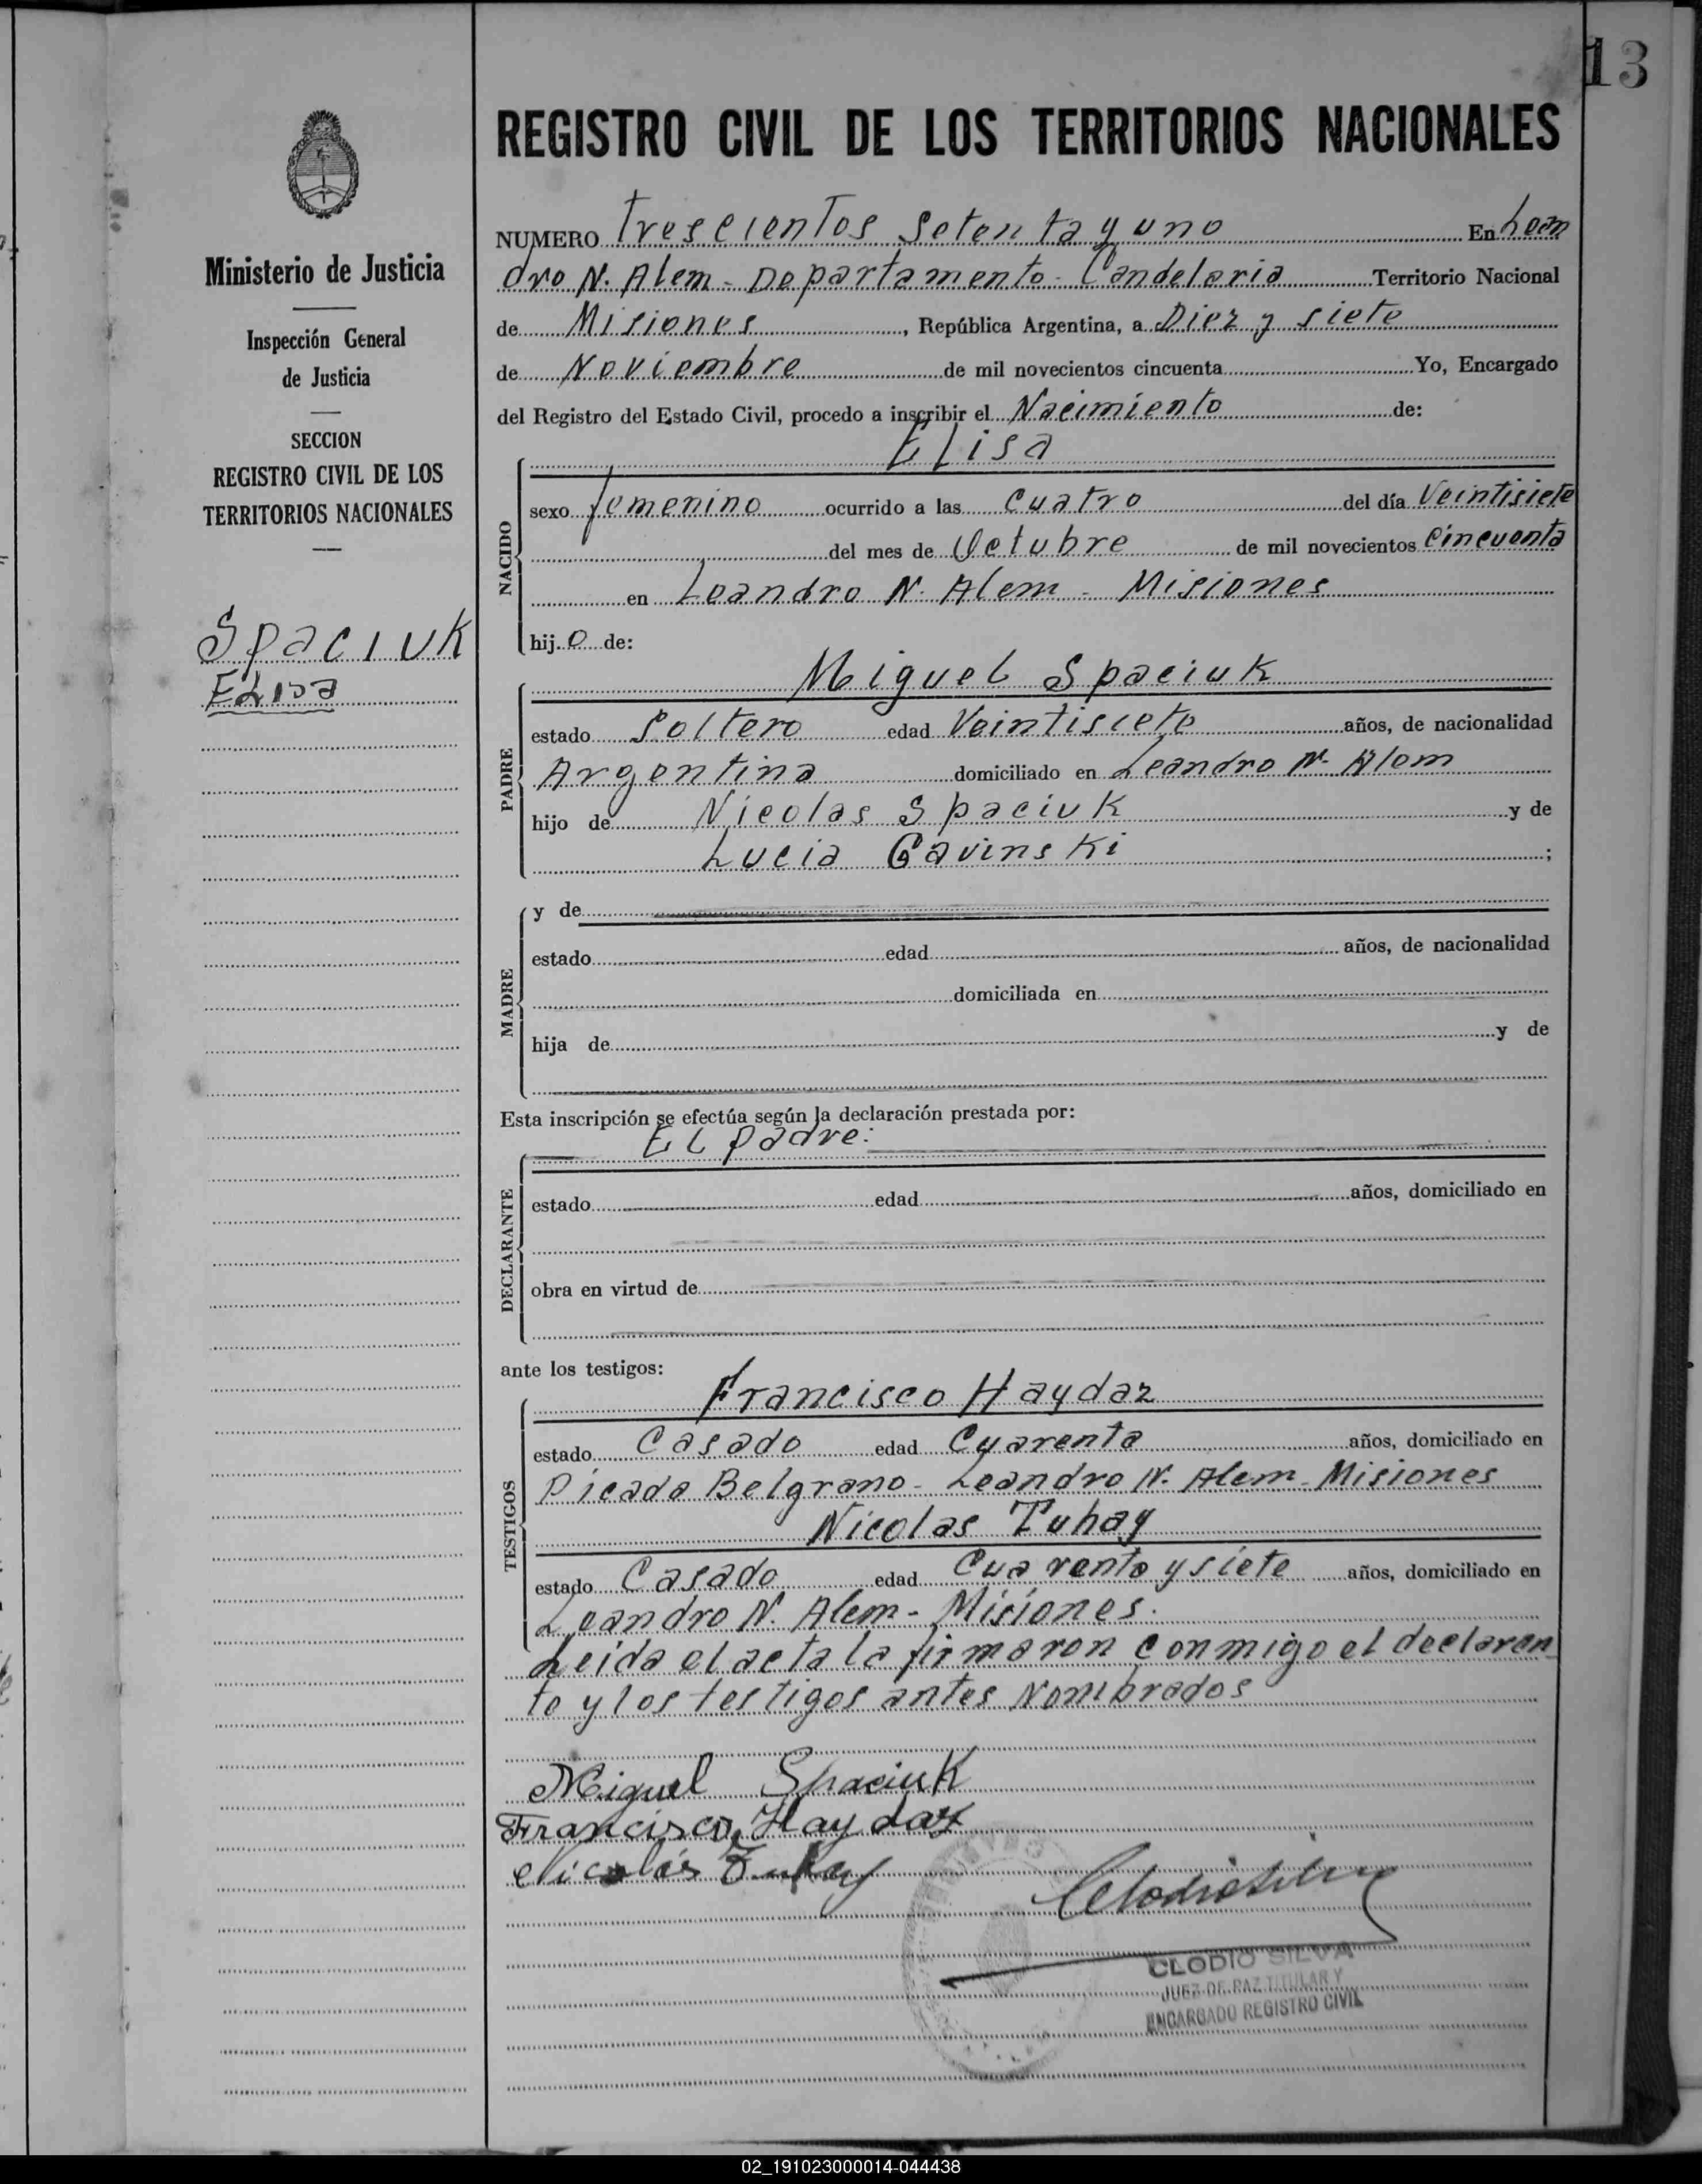 13
REGISTRO CIVIL DE LOS TERRITORIOS NACIONALES
Ministerio de Justicia
Inspección General
de Justicia
SECCION
REGISTRO CIVIL DE LOS
TERRITORIOS NACIONALES
Spaciuk
Elisa
NUMERO Trescientos Setenta y uno En Lean
dro N. Alem - Departamento - Candelaria Territorio Nacional
de Misiones, República Argentina, a Diez y siete
de Noviembre de mil novecientos cincuenta Yo, Encargado
del Registro del Estado Civil, procedo a inscribir el Nacimiento de:
NACIDO
Elisa
sexo femenino ocurrido a las cuatro del día Veintisiete
del mes de Octubre de mil novecientos Cincuenta
en Leandro N. Alem - Misiones
hij o de:
PADRE
Miguel Spaciuk
estado Soltero edad Veintisiete años, de nacionalidad
Argentina domiciliado en Leandro N. Alem
hijo de Nicolas Spaciuk y de
Lucia Gavinski ;
MADRE
y de
estado edad años, de nacionalidad
domiciliada en
hija de y de
Esta inscripción se efectúa según la declaración prestada por:
DECLARANTE
El padre:
estado edad años, domiciliado en
obra en virtud de
ante los testigos:
TESTIGOS
Francisco Haydaz
estado Casado edad Cuarenta años, domiciliado en
Picada Belgrano - Leandro N. Alem - Misiones
Nicolas Tuhay
estado Casado edad Cuarenta y siete años, domiciliado en
Leandro N. Alem - Misiones.
Leida el acta la firmaron conmigo el declaran
te y los testigos antes Nombrados
Miguel Spaciuk
Francisco Haydaz
Nicolás Tuhay
Clodio Silva
CLODIO SILVA
JUEZ DE PAZ TITULAR Y
ENCARGADO REGISTRO CIVIL
02_191023000014-044438